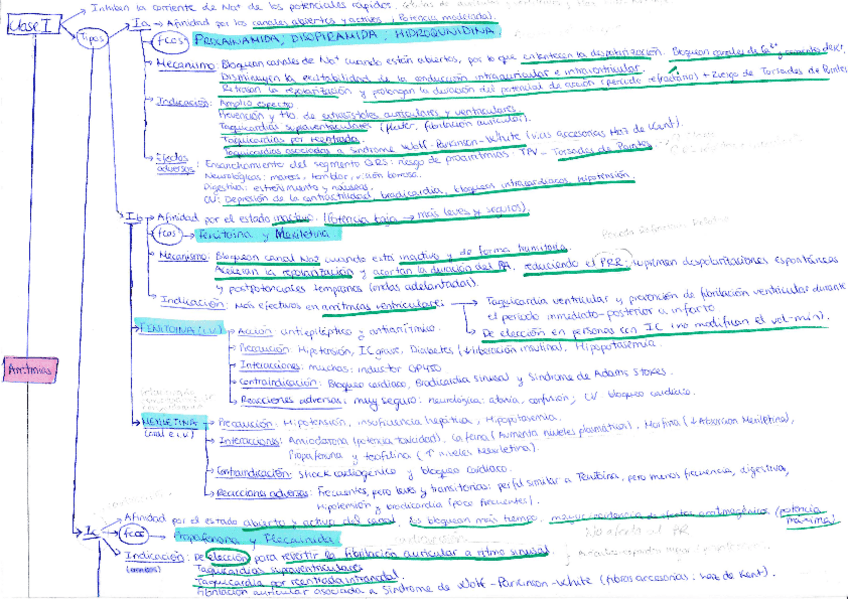 Clase I
Inhiben la corriente de Na+ de los potenciales rápidos.
Tipos
Ia → Afinidad por los canales abiertos y activos, Potencia moderada.
fcos PROCAINAMIDA, DISOPIRAMIDA, HIDROQUINIDINA
Mecanismo: Bloquean canales de Na+ cuando están abiertos, por lo que enlentecen la despolarización. Bloquean canales de
Disminuyen la excitabilidad de la conducción intraauricular e intraventricular.
Retrasan la repolarización y prolongan la duración del potencial de acción (Periodo refractario) → riesgo de Torsades de Pointes
Indicación: Amplio espectro
Prevención y tto. de extrasístoles auriculares y ventriculares
Taquicardias supraventriculares (flutter, fibrilación auricular).
Taquicardias por reentrada
Taquicardias asociadas a síndrome Wolf-Parkinson-White (vías accesorias Haz de Kent).
Efectos adversos: Ensanchamiento del segmento QRS: riesgo de proarritmias TPV - Torsades de Pointes
Neurológicas: mareos, temblor, visión borrosa.
Digestiva: estreñimiento y náuseas.
CV: Depresión de la contractilidad, bradicardia, bloqueos intracardiacos, hipotensión
Ib → Afinidad por el estado inactivo. (Potencia baja → más leves y seguros).
fcos → Fenitoina y Mexiletina
Mecanismo: Bloquean canal Na+ cuando está inactivo y de forma transitoria.
Aceleran la repolarización y acortan la duración del PA, reduciendo el PRR: suprimen despolarizaciones espontáneas
y postpotenciales tempranos (ondas adelantadas).
Indicación: Más efectivos en arritmias ventriculares → Taquicardia ventricular y prevención de fibrilación ventricular durante
el periodo inmediato-posterior a infarto
De elección en personas con IC (no modifican el vol-min).
FENITOINA (i.v.) → Acción: antiepiléptico y antiarrítmico.
Precaución: Hipotensión, IC grave, Diabetes (↓ liberación insulina), Hipopotasemia.
Interacciones: muchas: inductor CYP450
Contraindicación: Bloqueo cardiaco, Bradicardia sinusal y Síndrome de Adams Stokes.
Reacciones adversas: muy seguro: neurológica: ataxia, confusión; CV bloqueo cardiaco.
MEXILETINA (oral e i.v.) → Precaución: Hipotensión, insuficiencia hepática, Hipopotasemia.
Interacciones: Amiodarona (potencia toxicidad), Cafeina (Aumenta niveles plasmáticos), Morfina (↓ Absorción Mexiletina),
Propafenona y teofilina (↑ niveles Mexiletina).
Contraindicación: Shock cardiogénico y bloqueo cardiaco.
Reacciones adversas: Frecuentes, pero leves y transitorias: perfil similar a Fenitoina, pero menos frecuencia, digestiva,
Hipotensión y bradicardia (poco frecuentes).
Arritmias
Ic → Afinidad por el estado abierto y activo del canal, los bloquean más tiempo, (potencia máxima)
fcos → Propafenona y Flecainida
Indicación: De elección para revertir la fibrilación auricular a ritmo sinusal
Taquicardias supraventriculares
Taquicardia por reentrada intranodal.
Fibrilación auricular asociada a Síndrome de Wolf-Parkinson-White (fibras accesorias: haz de Kent).